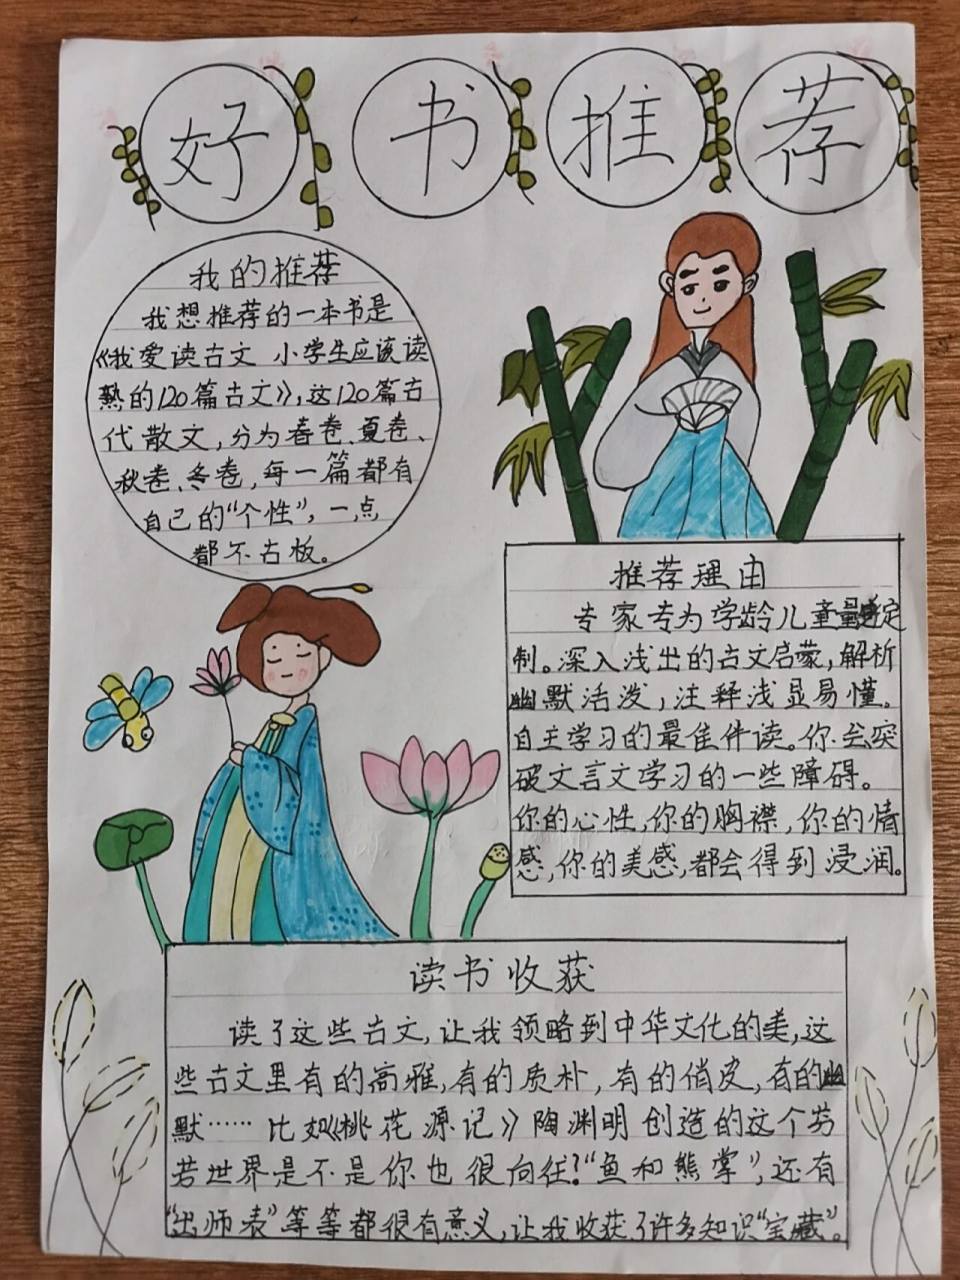 好书推荐
我的推荐
我想推荐的一本书是
《我爱读古文 小学生应该读
熟的120篇古文》，这120篇古
代散文，分为春卷、夏卷、
秋卷、冬卷，每一篇都有
自己的“个性”，一点
都不古板。
推荐理由
专家专为学龄儿童量定
制。深入浅出的古文启蒙，解析
幽默活泼，注释浅显易懂。
自主学习的最佳伴读。你会突
破文言文学习的一些障碍。
你的心性，你的胸襟，你的情
感，你的美感，都会得到浸润。
读书收获
读了这些古文，让我领略到中华文化的美，这
些古文里有的高雅，有的质朴，有的俏皮，有的幽
默……比如《桃花源记》陶渊明创造的这个
若世界是不是你也很向往？“鱼和熊掌”，还有
“出师表”等等都很有意义，让我收获了许多知识“宝藏”。